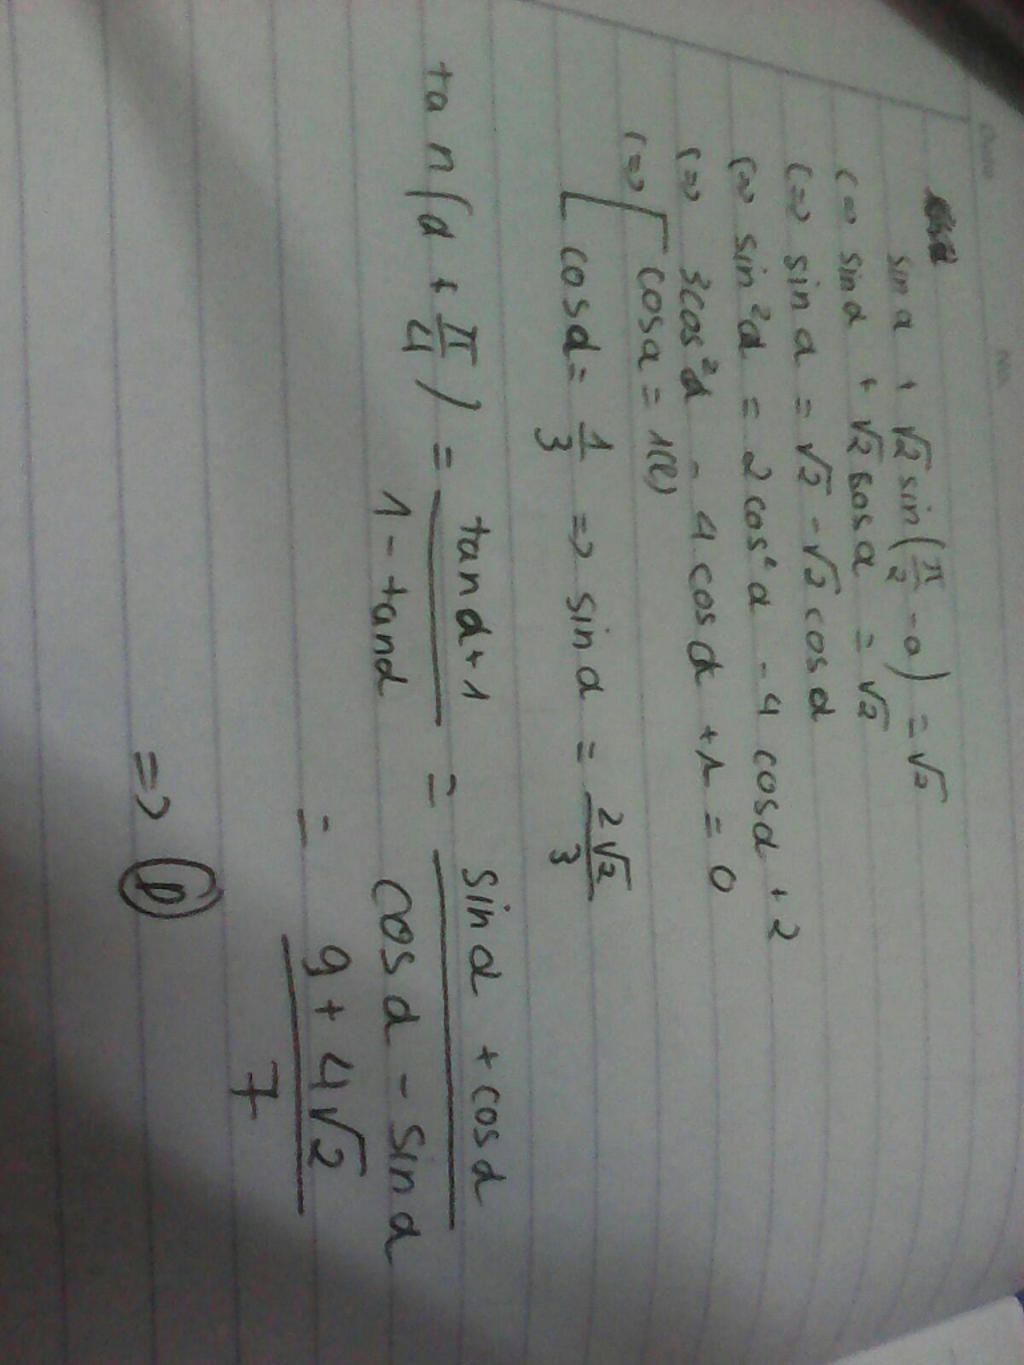 sin α + √2 sin(π/2 - α) = √2
(=> sin α + √2 cos α = √2
(=> sin α = √2 - √2 cos α
(=> sin²α = 2cos²α - 4 cos α + 2
(=> 3cos²α - 4 cos α + 1 = 0
(=> [ cos α = 1 (l)
cos α = 1/3 => sin α = 2√2/3
tan(α + π/4) = (tan α + 1)/(1 - tan α) = (sin α + cos α)/(cos α - sin α)
= (9 + 4√2)/7
=>